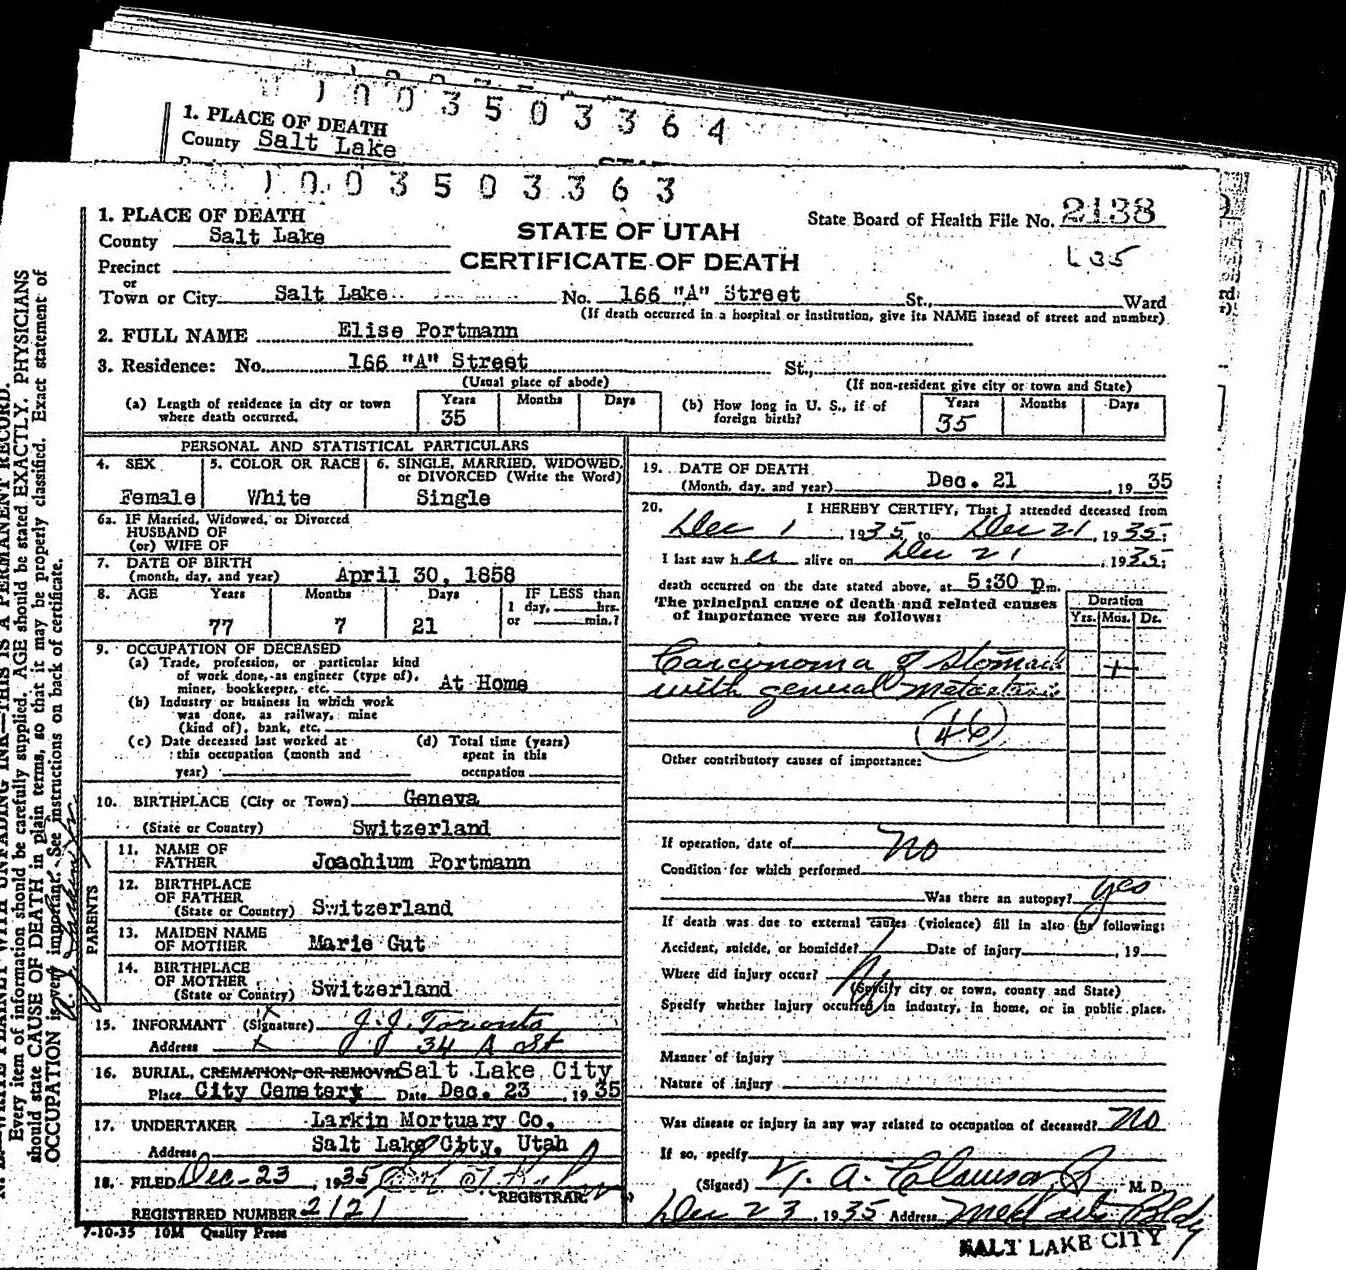 1003503364
1. PLACE OF DEATH
County Salt Lake
1003503363
1. PLACE OF DEATH
County Salt Lake
STATE OF UTAH
CERTIFICATE OF DEATH
State Board of Health File No. 2138
L 35
Precinct
or
Town or City Salt Lake No. 166 "A" Street St., Ward
(If death occurred in a hospital or institution, give its NAME insead of street and number)
2. FULL NAME Elise Portmann
3. Residence: No. 166 "A" Street St.,
(Usual place of abode) (If non-resident give city or town and State)
(a) Length of residence in city or town where death occurred. Years 35 Months Days
(b) How long in U. S., if of foreign birth? Years 35 Months Days
PERSONAL AND STATISTICAL PARTICULARS
4. SEX Female
5. COLOR OR RACE White
6. SINGLE, MARRIED, WIDOWED, or DIVORCED (Write the Word) Single
6a. IF Married, Widowed, or Divorced
HUSBAND OF
(or) WIFE OF
7. DATE OF BIRTH
(month, day, and year) April 30, 1858
8. AGE Years 77 Months 7 Days 21
IF LESS than
1 day, hrs.
or min.?
9. OCCUPATION OF DECEASED
(a) Trade, profession, or particular kind
of work done, as engineer (type of),
miner, bookkeeper, etc. At Home
(b) Industry or business in which work
was done, as railway, mine
(kind of), bank, etc.
(c) Date deceased last worked at
this occupation (month and
year)
(d) Total time (years)
spent in this
occupation
10. BIRTHPLACE (City or Town) Geneva
(State or Country) Switzerland
PARENTS
11. NAME OF
FATHER Joachium Portmann
12. BIRTHPLACE
OF FATHER
(State or Country) Switzerland
13. MAIDEN NAME
OF MOTHER Marie Gut
14. BIRTHPLACE
OF MOTHER
(State or Country) Switzerland
15. INFORMANT (Signature) J. J. Toronto
Address 34 A St
16. BURIAL, CREMATION, OR REMOVAL Salt Lake City
Place City Cemetery Date Dec. 23, 1935
17. UNDERTAKER Larkin Mortuary Co.
Address Salt Lake City, Utah
18. FILED Dec-23, 1935
REGISTRAR.
REGISTERED NUMBER 2121
7-10-35 10M Quality Press
19. DATE OF DEATH
(Month, day, and year) Dec. 21, 1935
20. I HEREBY CERTIFY, That I attended deceased from
Dec 1, 1935, to Dec 21, 1935;
I last saw her alive on Dec 21, 1935;
death occurred on the date stated above, at 5:30 p.m.
The principal cause of death and related causes
of importance were as follows:
Duration
Yrs. Mos. Ds.
Carcinoma of Stomach
with general metastasis
46
Other contributory causes of importance:
If operation, date of No
Condition for which performed
Was there an autopsy? yes
If death was due to external causes (violence) fill in also the following:
Accident, suicide, or homicide? Date of injury , 19
Where did injury occur?
(Specify city or town, county and State)
Specify whether injury occurred in industry, in home, or in public place.
Manner of injury
Nature of injury
Was disease or injury in any way related to occupation of deceased? No
If so, specify
(Signed) A. Clawson Jr M. D.
Dec 23, 1935 Address Bldg
SALT LAKE CITY
THIS IS A PERMANENT RECORD.
Every item of information should be carefully supplied. AGE should be stated EXACTLY. PHYSICIANS
should state CAUSE OF DEATH in plain terms, so that it may be properly classified. Exact statement of
OCCUPATION is very important. See instructions on back of certificate.